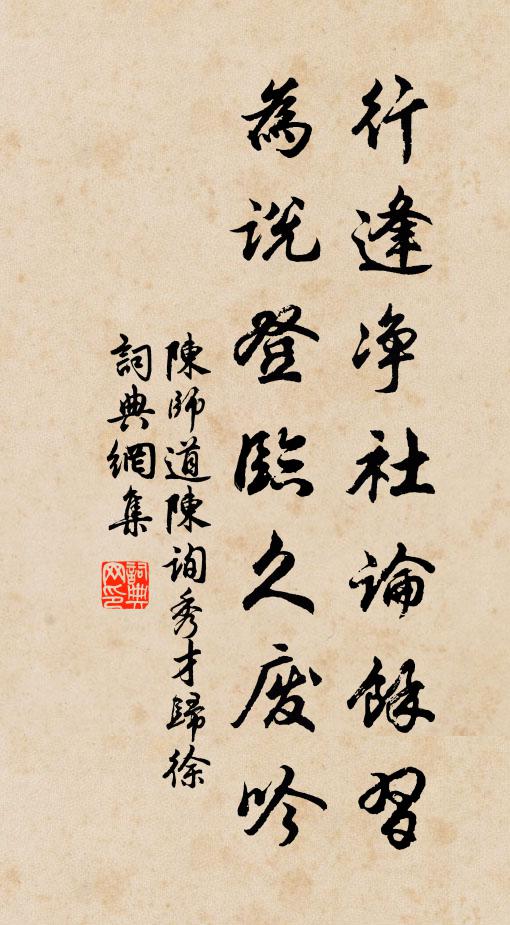 行逢净社論餘習
為説登臨久廢吟
陳師道陳詢秀才歸徐
詞典網集
詞典
网印